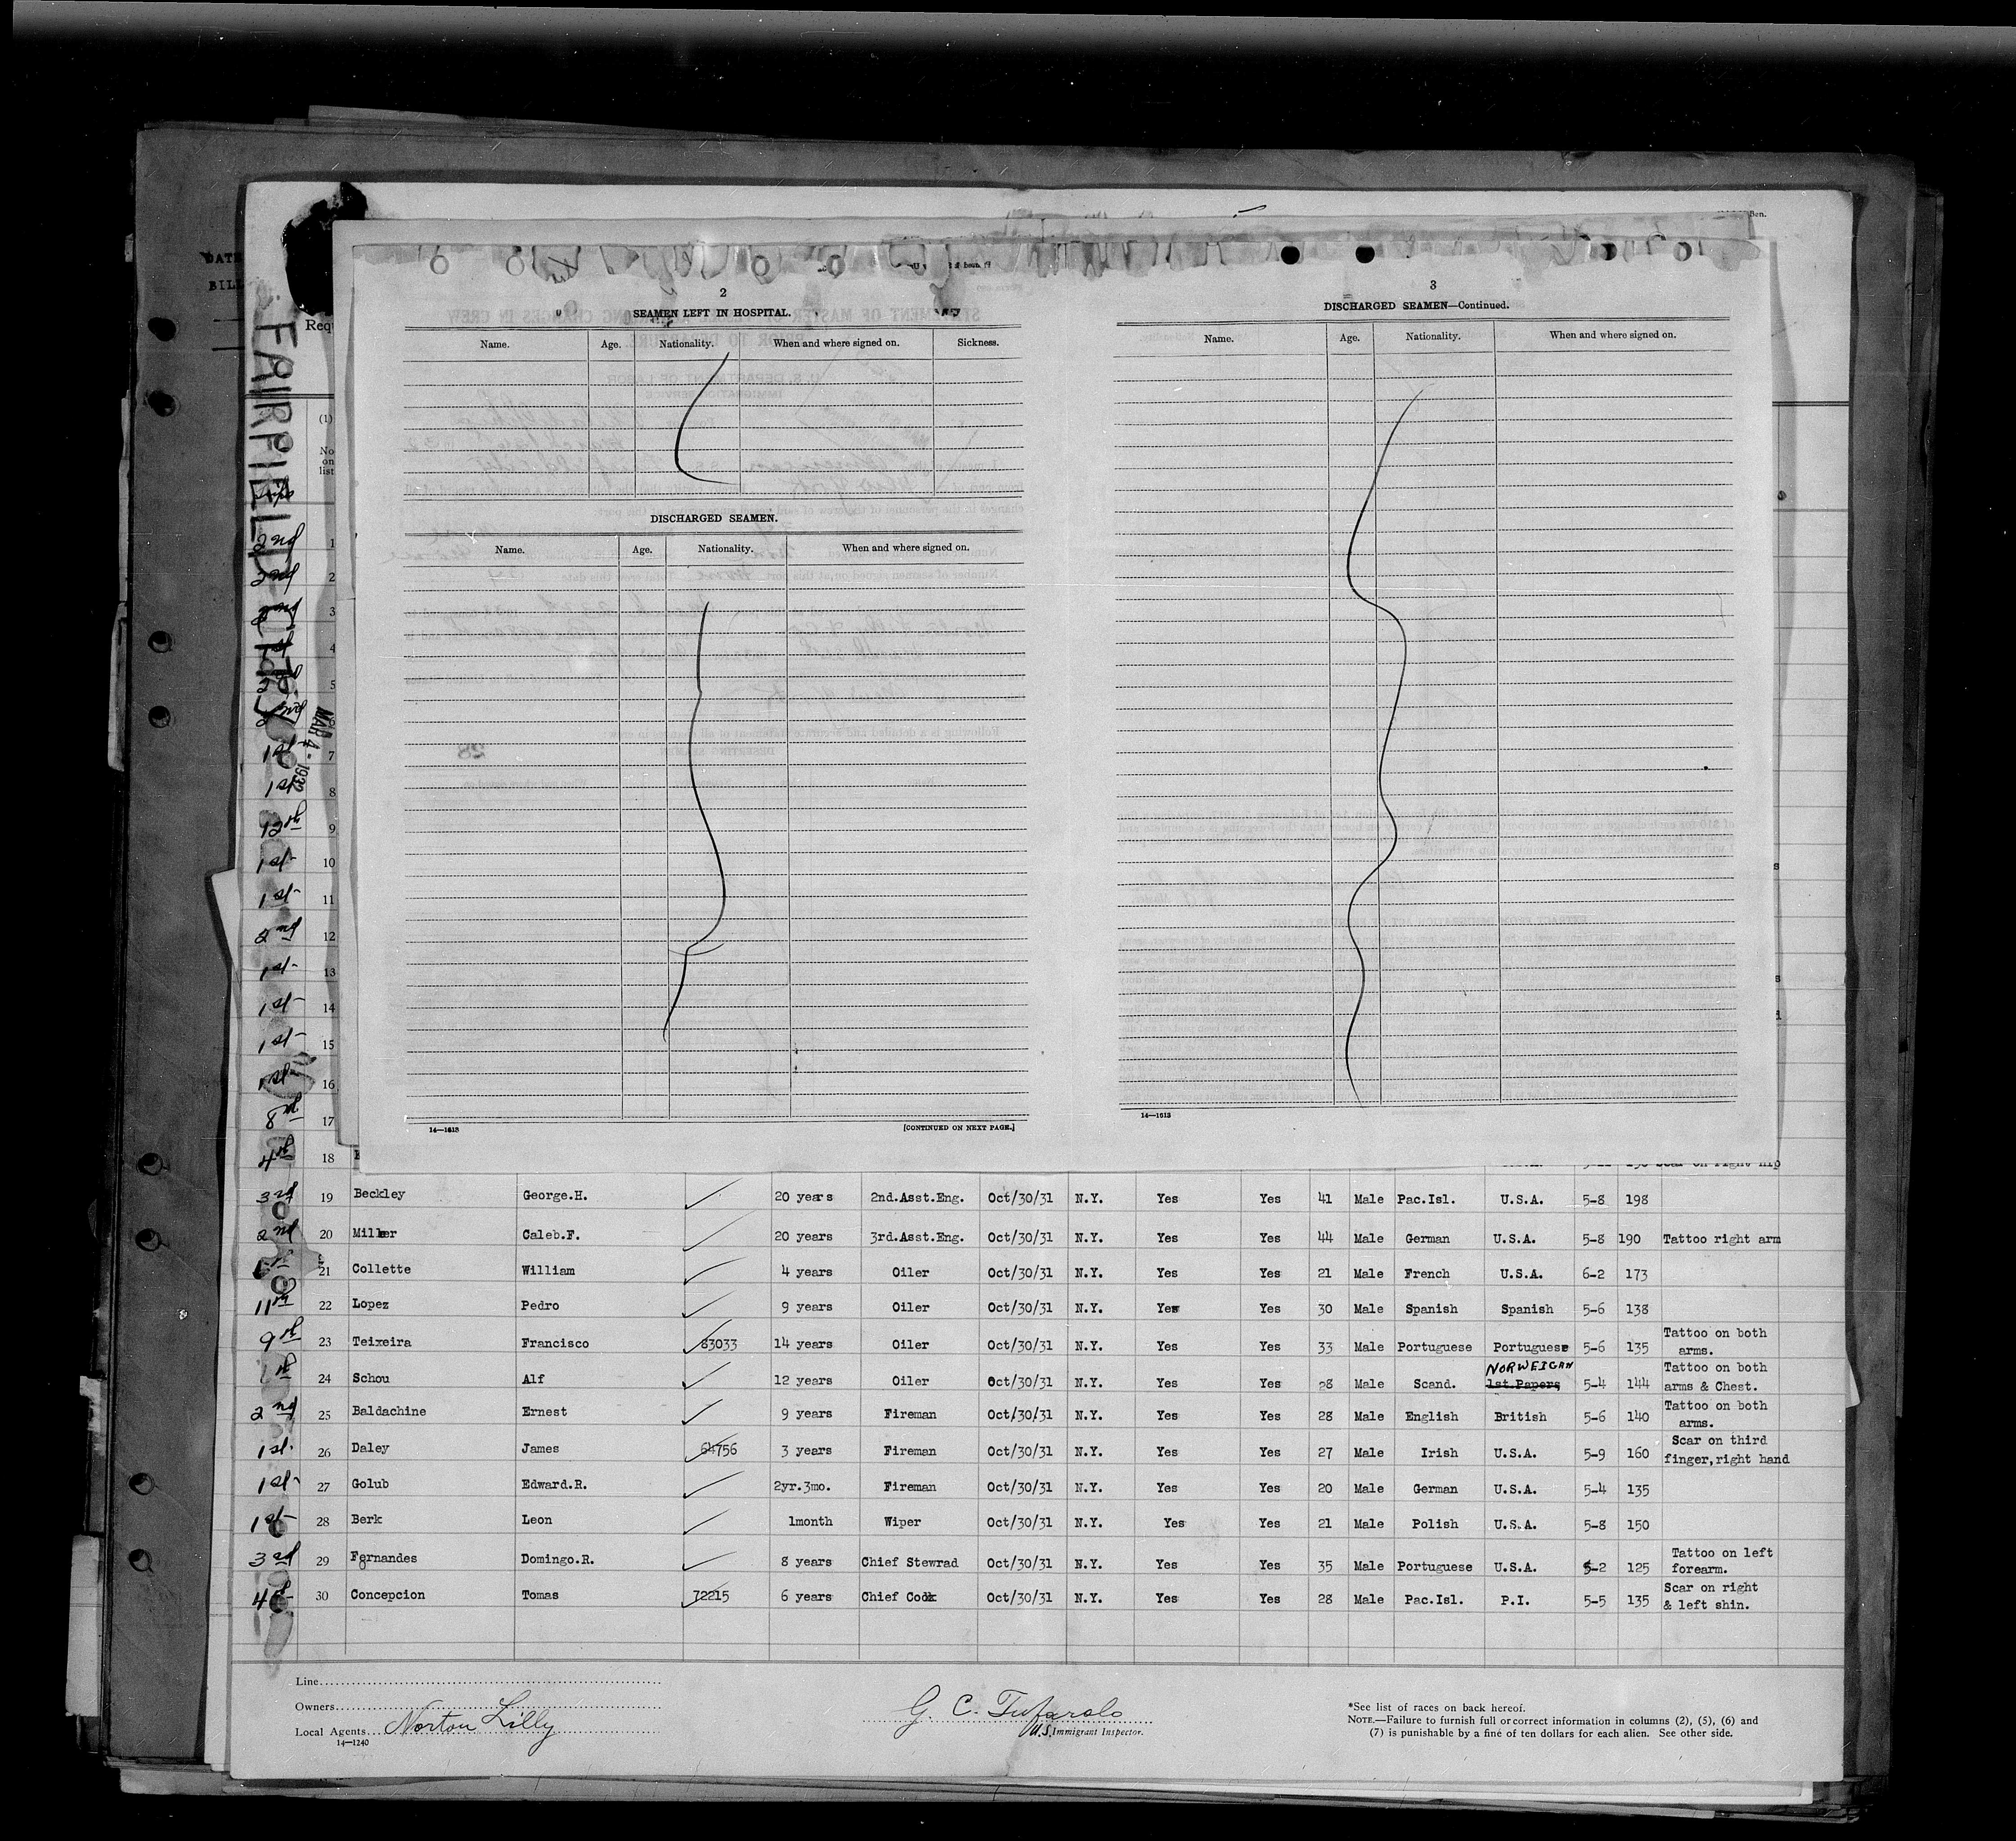 DATE
BILL
Requ
FAIRFIELD CITY
MAR 4 - 1932
2
SEAMEN LEFT IN HOSPITAL.
Name. Age. Nationality. When and where signed on. Sickness.
DISCHARGED SEAMEN.
Name. Age. Nationality. When and where signed on.
14—1613 [CONTINUED ON NEXT PAGE.]
3
DISCHARGED SEAMEN—Continued.
Name. Age. Nationality. When and where signed on.
14—1613
(1)
No
on
list
2nd 1
2nd 2
3
4
5
6
1st 7
1st 8
12th 9
1st 10
1st 11
2nd 12
1st 13
1st 14
1st 15
1st 16
8th 17
4th 18 Scar on right hip
3rd 19 Beckley George.H. 20 years 2nd.Asst.Eng. Oct/30/31 N.Y. Yes Yes 41 Male Pac.Isl. U.S.A. 5-8 198
2nd 20 Miller Caleb.F. 20 years 3rd.Asst.Eng. Oct/30/31 N.Y. Yes Yes 44 Male German U.S.A. 5-8 190 Tattoo right arm
21 Collette William 4 years Oiler Oct/30/31 N.Y. Yes Yes 21 Male French U.S.A. 6-2 173
11th 22 Lopez Pedro 9 years Oiler Oct/30/31 N.Y. Yes Yes 30 Male Spanish Spanish 5-6 138
9th 23 Teixeira Francisco 83033 14 years Oiler Oct/30/31 N.Y. Yes Yes 33 Male Portuguese Portuguese 5-6 135 Tattoo on both arms.
24 Schou Alf 12 years Oiler Oct/30/31 N.Y. Yes Yes 28 Male Scand. NORWEIGAN 1st.Papers 5-4 144 Tattoo on both arms & Chest.
2nd 25 Baldachine Ernest 9 years Fireman Oct/30/31 N.Y. Yes Yes 28 Male English British 5-6 140 Tattoo on both arms.
1st. 26 Daley James 64756 3 years Fireman Oct/30/31 N.Y. Yes Yes 27 Male Irish U.S.A. 5-9 160 Scar on third finger,right hand
1st 27 Golub Edward.R. 2yr.3mo. Fireman Oct/30/31 N.Y. Yes Yes 20 Male German U.S.A. 5-4 135
1st 28 Berk Leon 1month Wiper Oct/30/31 N.Y. Yes Yes 21 Male Polish U.S.A. 5-8 150
3rd 29 Fernandes Domingo.R. 8 years Chief Stewrad Oct/30/31 N.Y. Yes Yes 35 Male Portuguese U.S.A. 5-2 125 Tattoo on left forearm.
4th 30 Concepcion Tomas 72215 6 years Chief Cook Oct/30/31 N.Y. Yes Yes 28 Male Pac.Isl. P.I. 5-5 135 Scar on right & left shin.
Line
Owners
Local Agents Norton Lilly
14—1240
G. C. Tufarolo
U.S. Immigrant Inspector.
*See list of races on back hereof.
NOTE.—Failure to furnish full or correct information in columns (2), (5), (6) and
(7) is punishable by a fine of ten dollars for each alien. See other side.